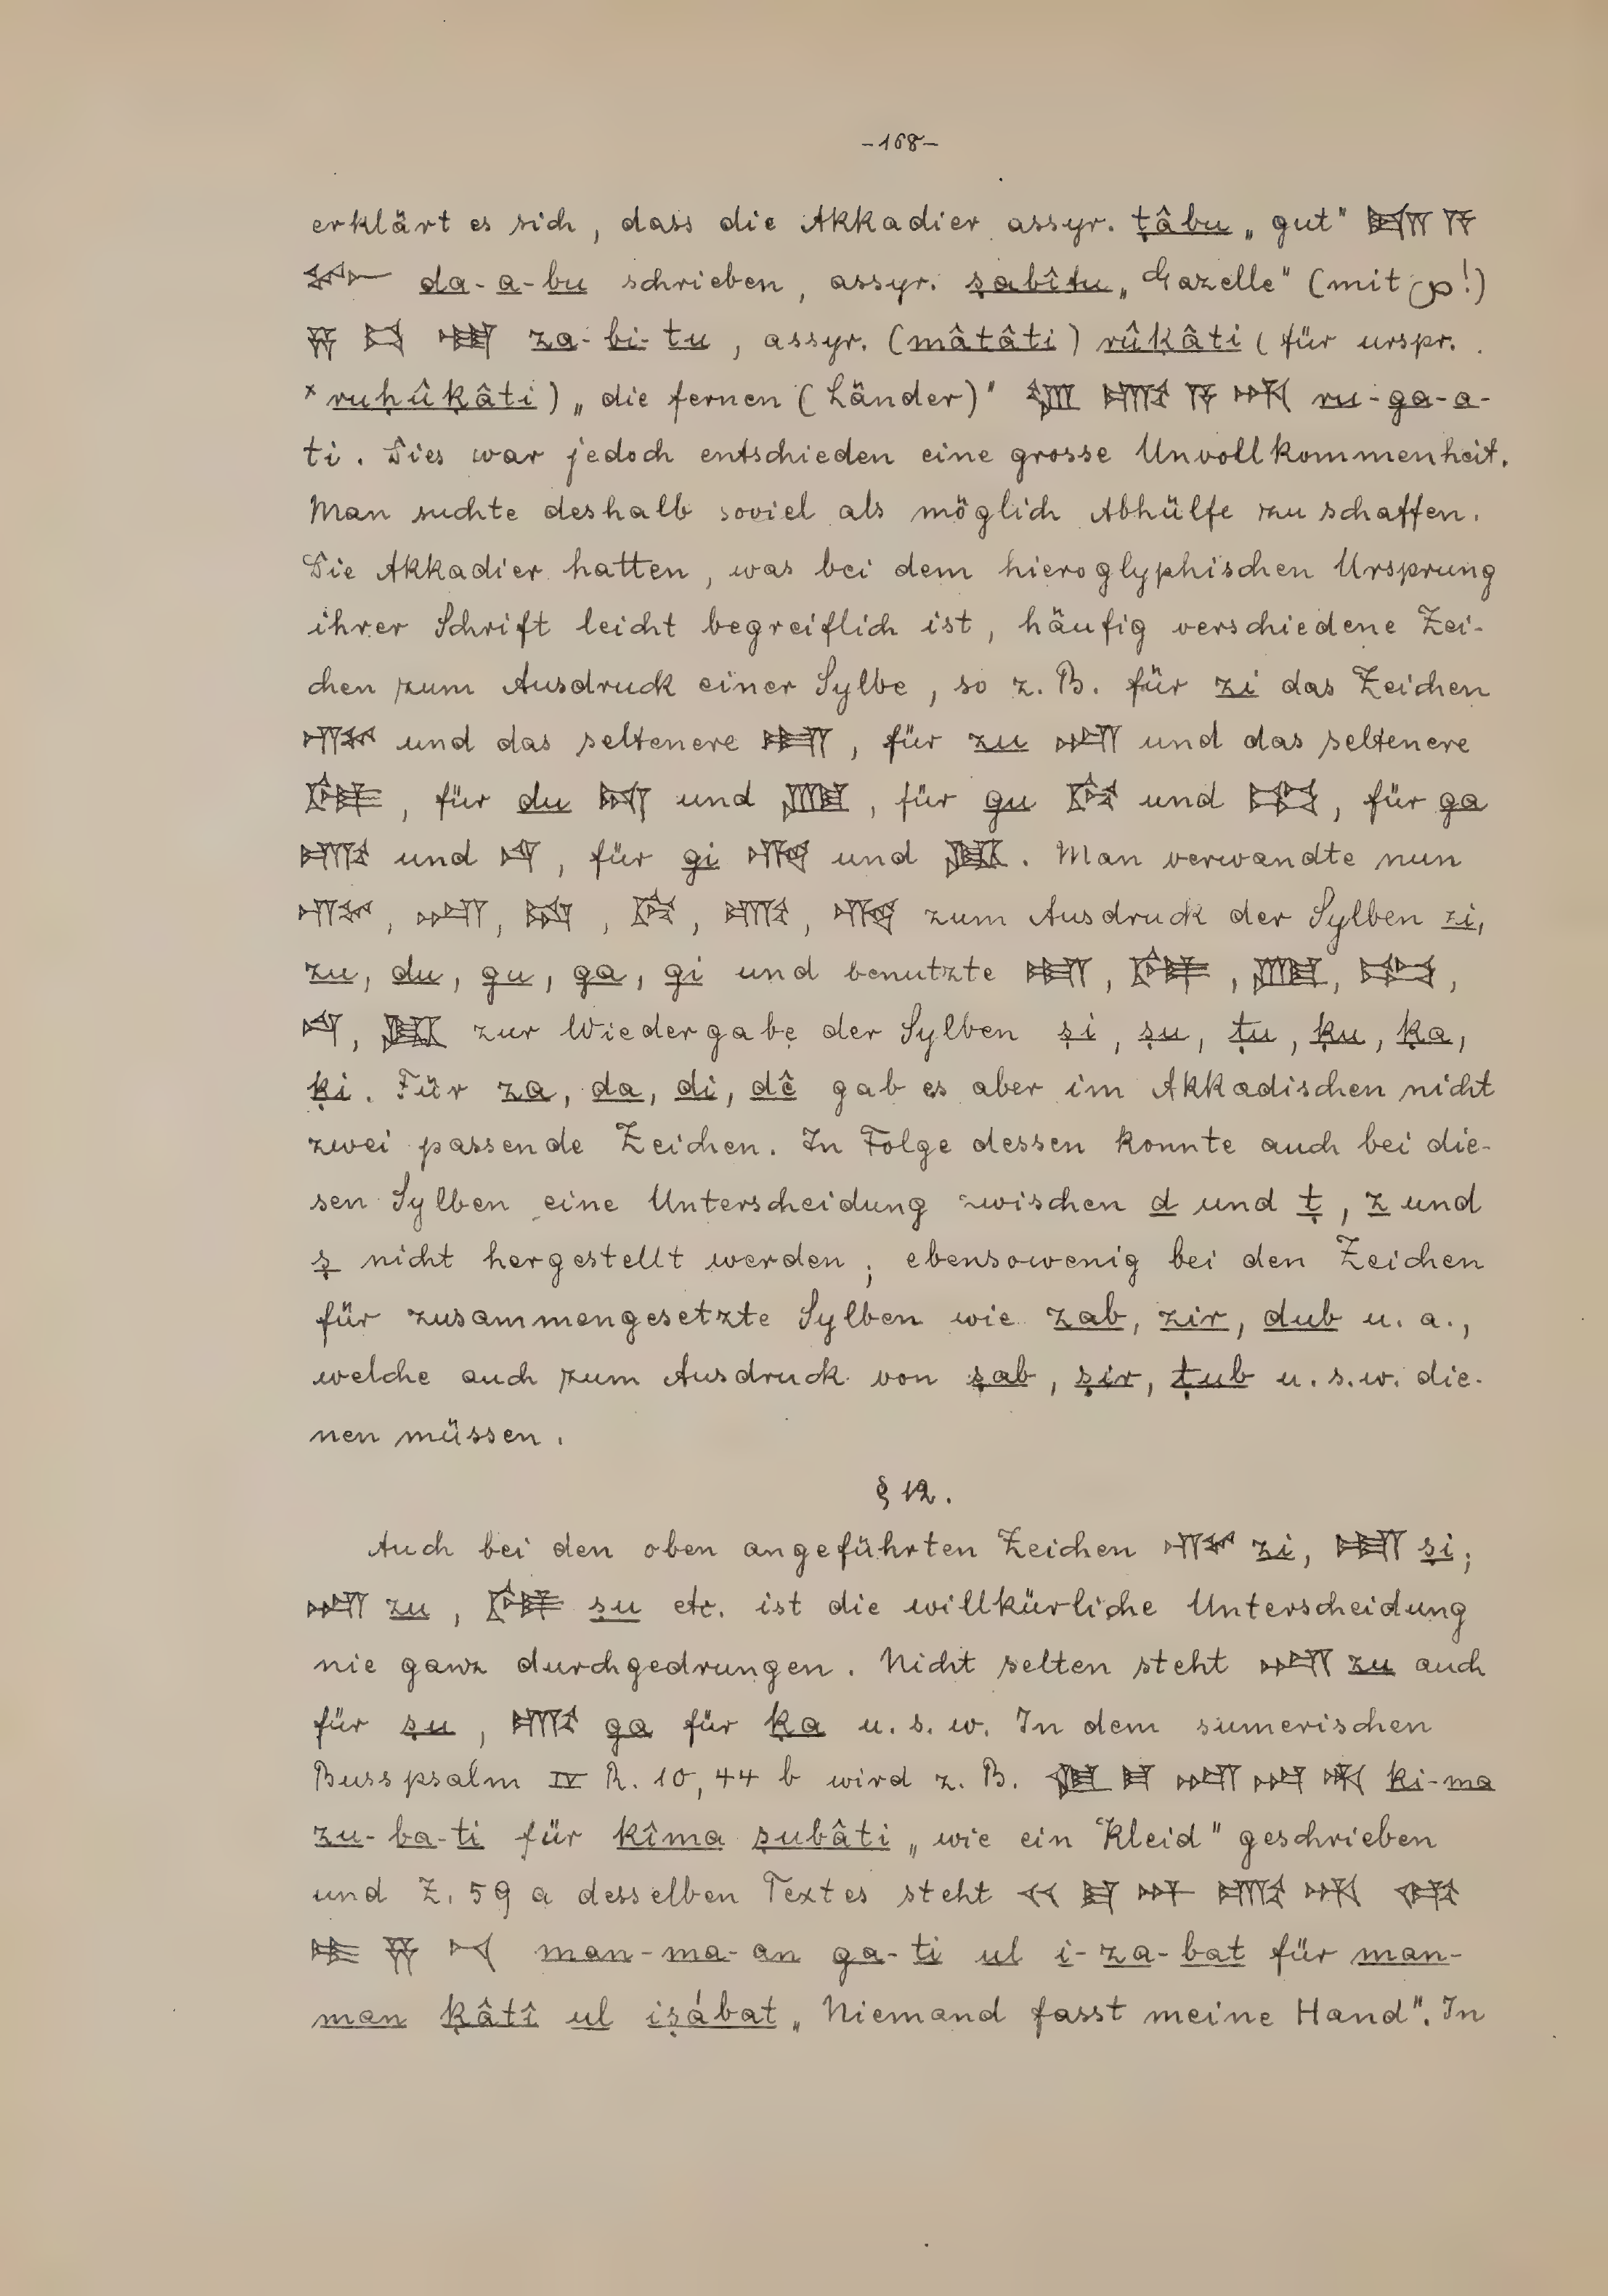 -168-
erklärt es sich, dass die Akkadier assyr. ṭâbu „gut" 𒁕 𒀀
𒁍 da-a-bu schrieben, assyr. ṣabîtu „Gazelle" (mit ص!)
𒍝 𒁉 𒌅 za-bi-tu, assyr. (mâtâti) rûḳâti (für urspr.
*ruḥûḳâti) „die fernen (Länder)" 𒊒 𒂵 𒀀 𒋾 ru-ga-a-
ti. Dies war jedoch entschieden eine grosse Unvollkommenheit.
Man suchte deshalb soviel als möglich Abhülfe zu schaffen.
Die Akkadier hatten, was bei dem hieroglyphischen Ursprung
ihrer Schrift leicht begreiflich ist, häufig verschiedene Zei-
chen zum Ausdruck einer Sylbe, so z. B. für zi das Zeichen
𒍣 und das seltenere 𒍢, für zu 𒍪 und das seltenere
𒍮, für du 𒁺 und 𒂅, für gu 𒄖 und 𒄣, für ga
𒂵 und 𒋡, für gi 𒄀 und 𒆥. Man verwandte nun
𒍣, 𒍪, 𒁺, 𒄖, 𒂵, 𒄀 zum Ausdruck der Sylben zi,
zu, du, gu, ga, gi und benutzte 𒍢, 𒍮, 𒂅, 𒄣,
𒋡, 𒆥 zur Wiedergabe der Sylben ṣi, ṣu, ṭu, ḳu, ḳa,
ḳi. Für za, da, di, dê gab es aber im Akkadischen nicht
zwei passende Zeichen. In Folge dessen konnte auch bei die-
sen Sylben eine Unterscheidung zwischen d und ṭ, z und
ṣ nicht hergestellt werden; ebensowenig bei den Zeichen
für zusammengesetzte Sylben wie zab, zir, dub u. a.,
welche auch zum Ausdruck von ṣab, ṣir, ṭub u. s. w. die-
nen müssen.
§ 12.
Auch bei den oben angeführten Zeichen 𒍣 zi, 𒍢 ṣi;
𒍪 zu, 𒍮 ṣu etc. ist die willkürliche Unterscheidung
nie ganz durchgedrungen. Nicht selten steht 𒍪 zu auch
für ṣu, 𒂵 ga für ḳa u. s. w. In dem sumerischen
Busspsalm IV R. 10, 44 b wird z. B. 𒆠 𒈠 𒍪 𒁀 𒋾 ki-ma
zu-ba-ti für kîma ṣubâti „wie ein Kleid" geschrieben
und Z. 59 a desselben Textes steht 𒎙 𒈠 𒀭 𒂵 𒋾 𒌌
𒄿 𒍝 𒁁 man-ma-an ga-ti ul i-za-bat für man-
man ḳâtî ul iṣábat „Niemand fasst meine Hand". In